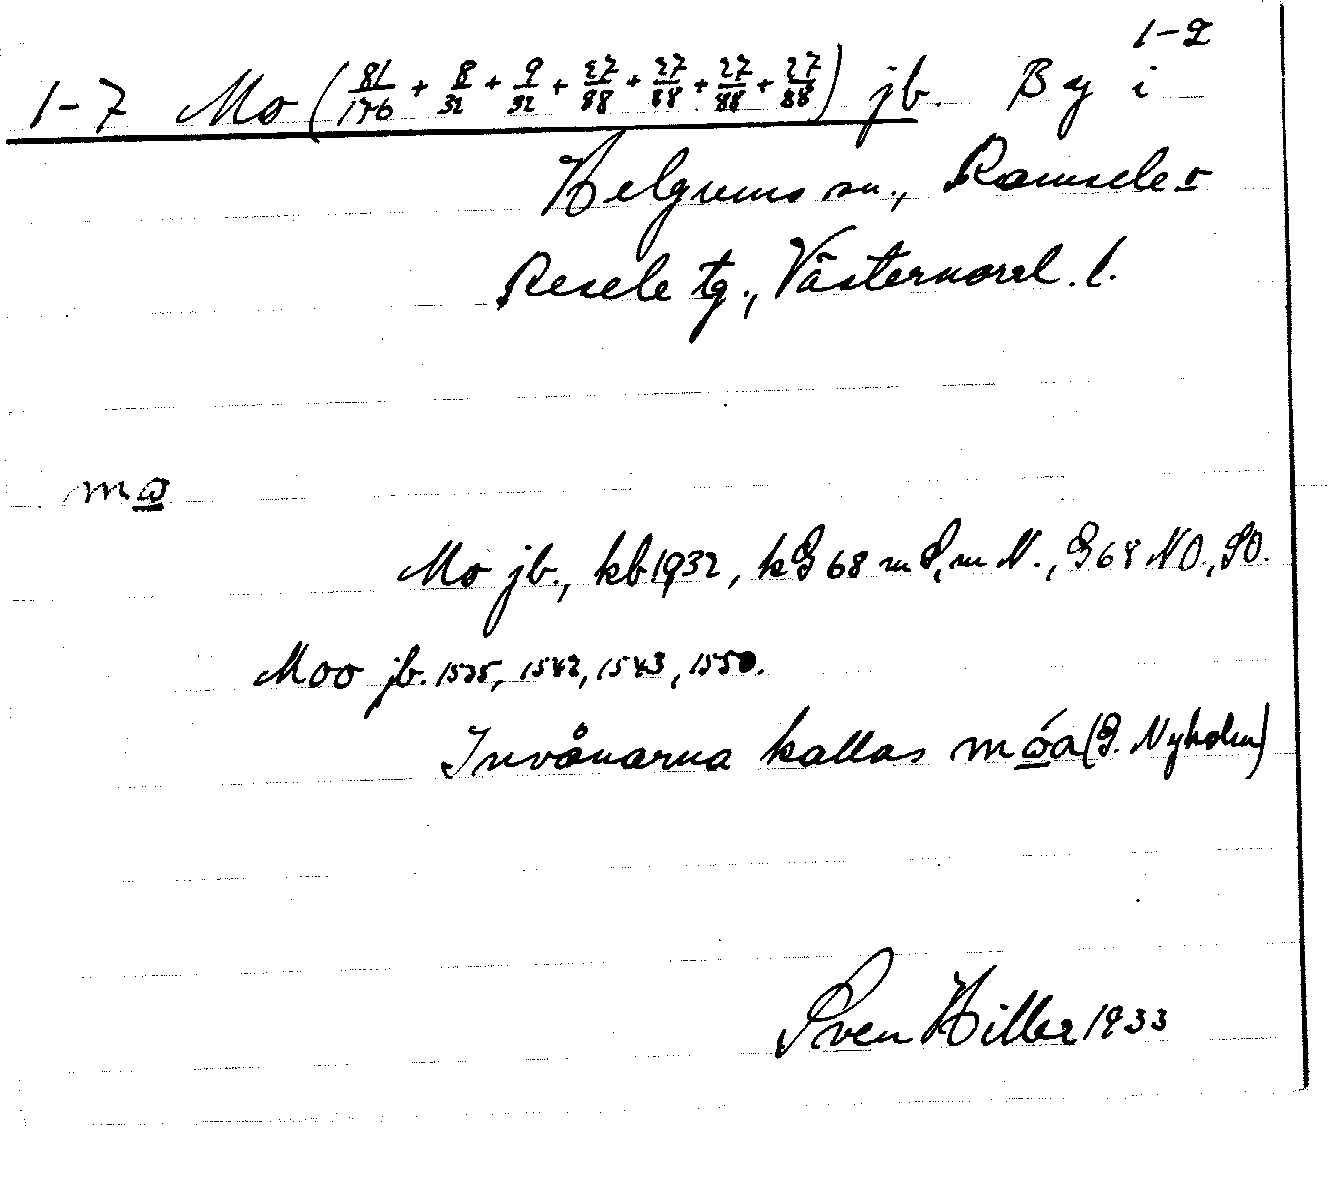 1-2
1-7 Mo (81/176 + 8/32 + 9/32 + 27/88 + 27/88 + 27/88 + 27/88) jb. By i
Helgums sn., Ramsele o
Resele tg., Västernorrl. l.
mo
Mo jb., kb 1932, kG 68 m S, m N., G 68 NO., SO.
Moo jb. 1535, 1542, 1543, 1550.
Invånarna kallas móa (G. Nyholm)
Sven Hiller 1933